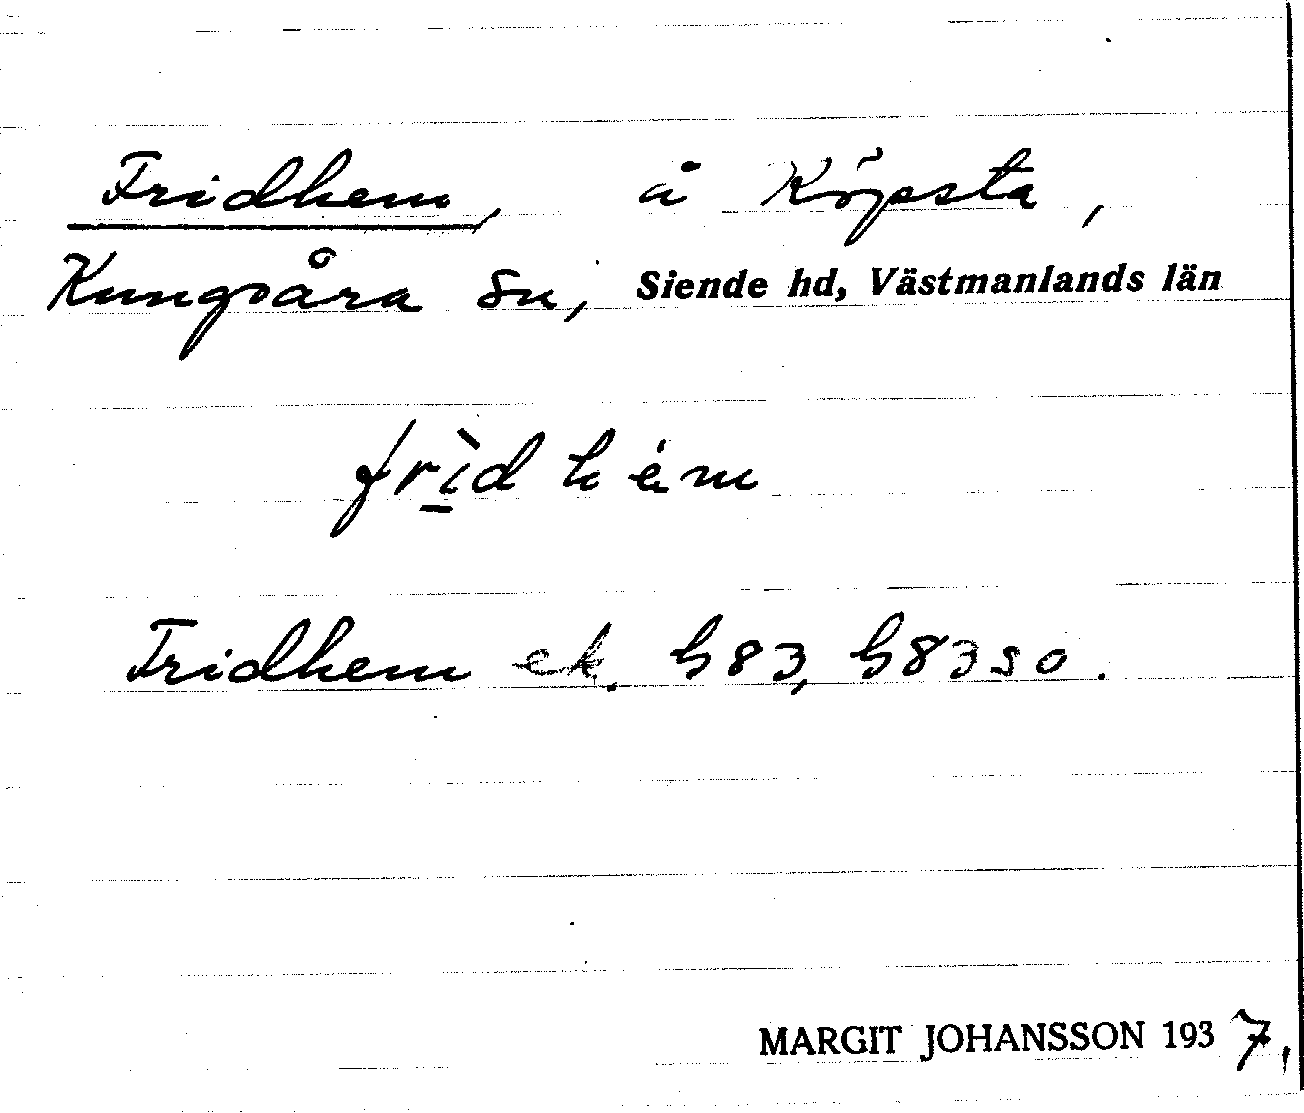 Fridhem, å Köpsta,
Kungsåra sn, Siende hd, Västmanlands län
frìd hem
Fridhem ek. h83, h83 s0.
MARGIT JOHANSSON 1937,